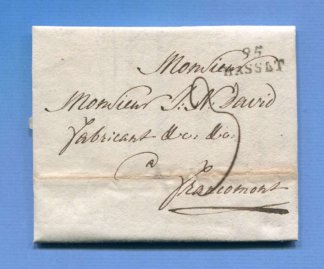 Monsieur
95
HASSELT
Monsieur J. N. David
fabricant &c. &c.
a
Francomont
3